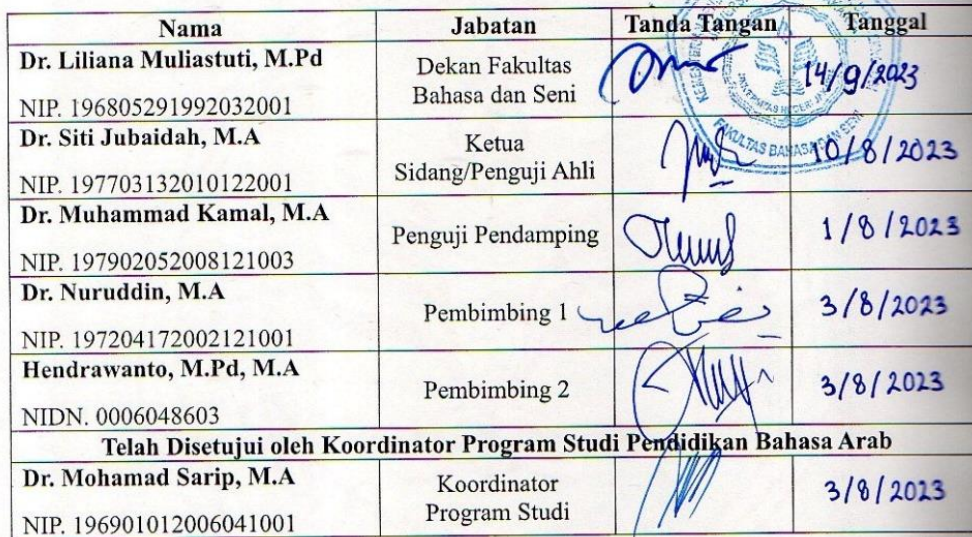 Nama Jabatan Tanda Tangan Tanggal
Dr. Liliana Muliastuti, M.Pd
NIP. 196805291992032001
Dekan Fakultas
Bahasa dan Seni
14/9/2023
Dr. Siti Jubaidah, M.A
NIP. 197703132010122001
Ketua
Sidang/Penguji Ahli
10/8/2023
Dr. Muhammad Kamal, M.A
NIP. 197902052008121003
Penguji Pendamping
1/8/2023
Dr. Nuruddin, M.A
NIP. 197204172002121001
Pembimbing 1
3/8/2023
Hendrawanto, M.Pd, M.A
NIDN. 0006048603
Pembimbing 2
3/8/2023
Telah Disetujui oleh Koordinator Program Studi Pendidikan Bahasa Arab
Dr. Mohamad Sarip, M.A
NIP. 196901012006041001
Koordinator
Program Studi
3/8/2023